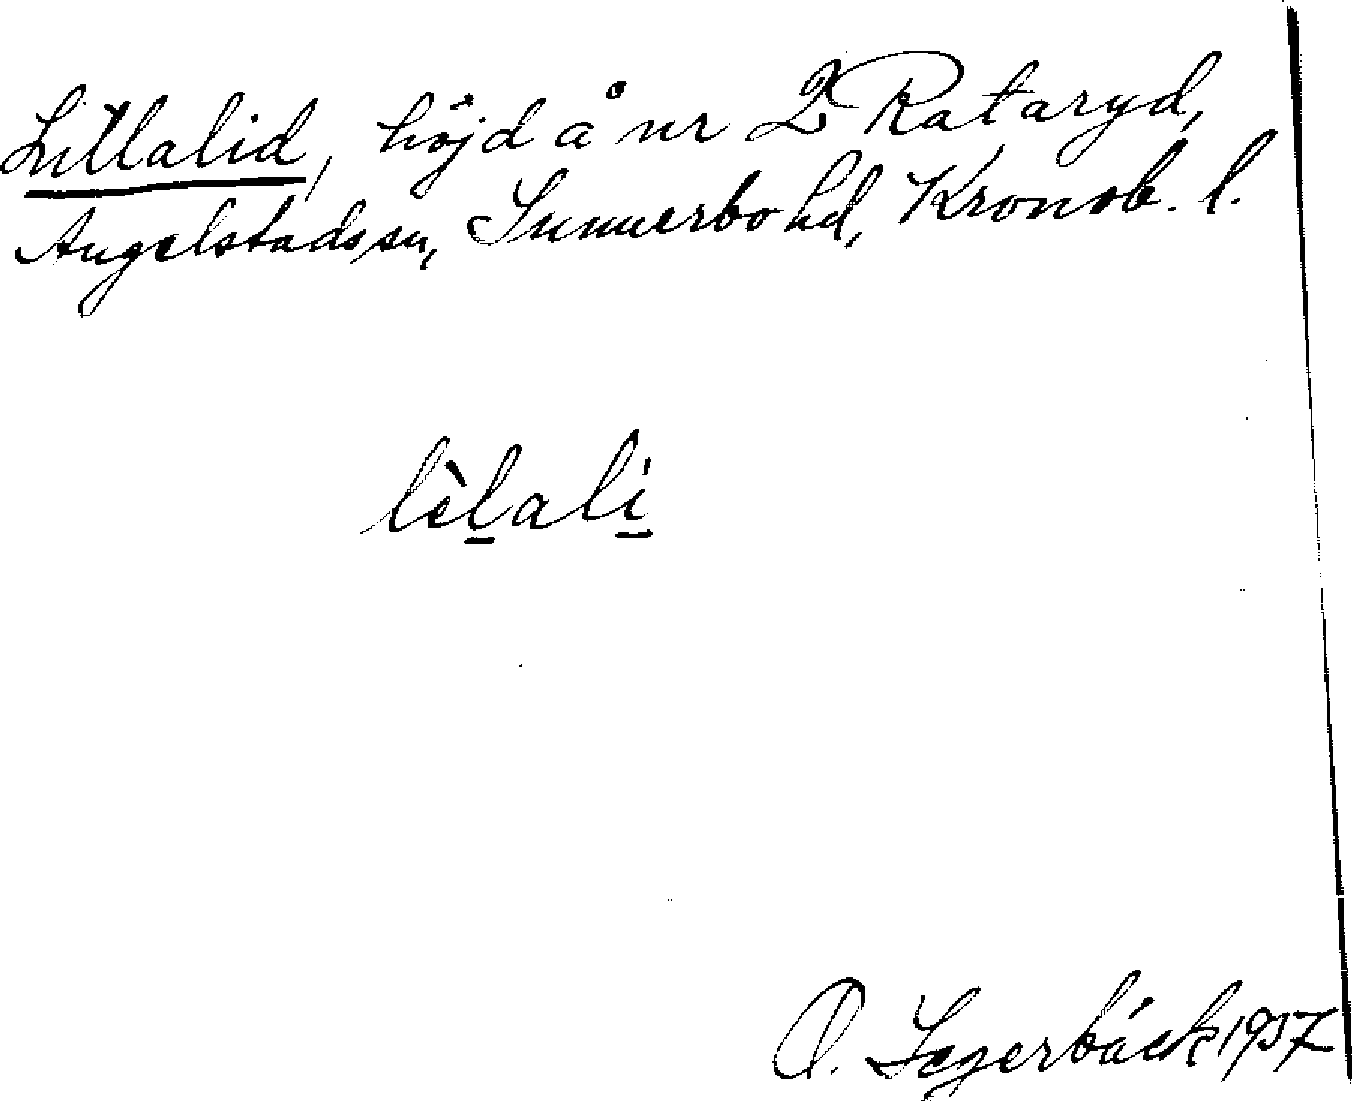 Lillalid, höjd å nr 2 Rataryd,
Angelstads sn, Sunnerbo hd, Kronob. l.
lèl̲ali̲
O. Segerbäck 1957